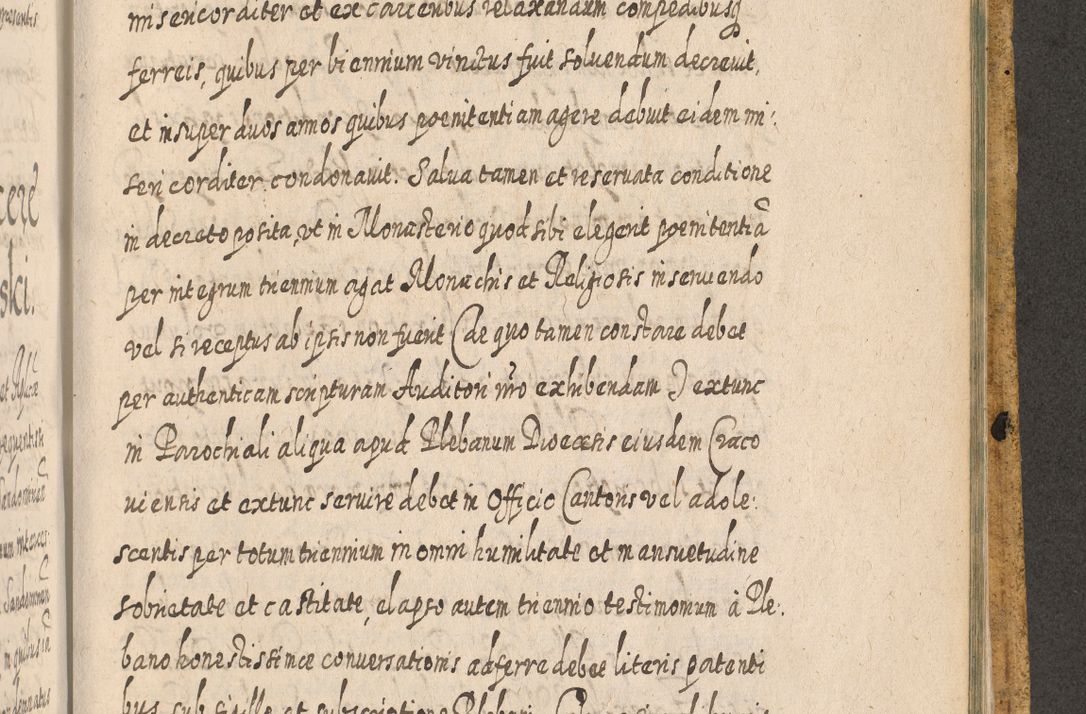 misericorditer et ex carceribus relaxandum compedibusq
ferreis, quibus per biennium vinctus fuit solvendum decrevit,
et insuper duos annos quibus poenitentiam agere debuit eidem mi:
sericorditer condonavit. Salva tamen et reservata conditione
in decreto posita, vt in Monasterio quod sibi elegerit poenitentiã
per integrum triennium agat Monachis et Religiosis inserviendo
vel si receptus ab ipsis non fuerit (de quo tamen constare debet
per authenticam scripturam Auditori nr̃o exhibendam) extunc
in Parochiali aliqua apud Plebanum Dioecesis eiusdem Craco
viensis et extunc servire debet in Officio Cantoris vel adole:
scentis per totum triennium in omni humilitate et mansuetudine
sobrietate et castitate, elapso autem triennio testimonium à Ple:
bano honestissimae conversationis adferre debet literis patenti
bus sub sigillo et subscriptione Plebani